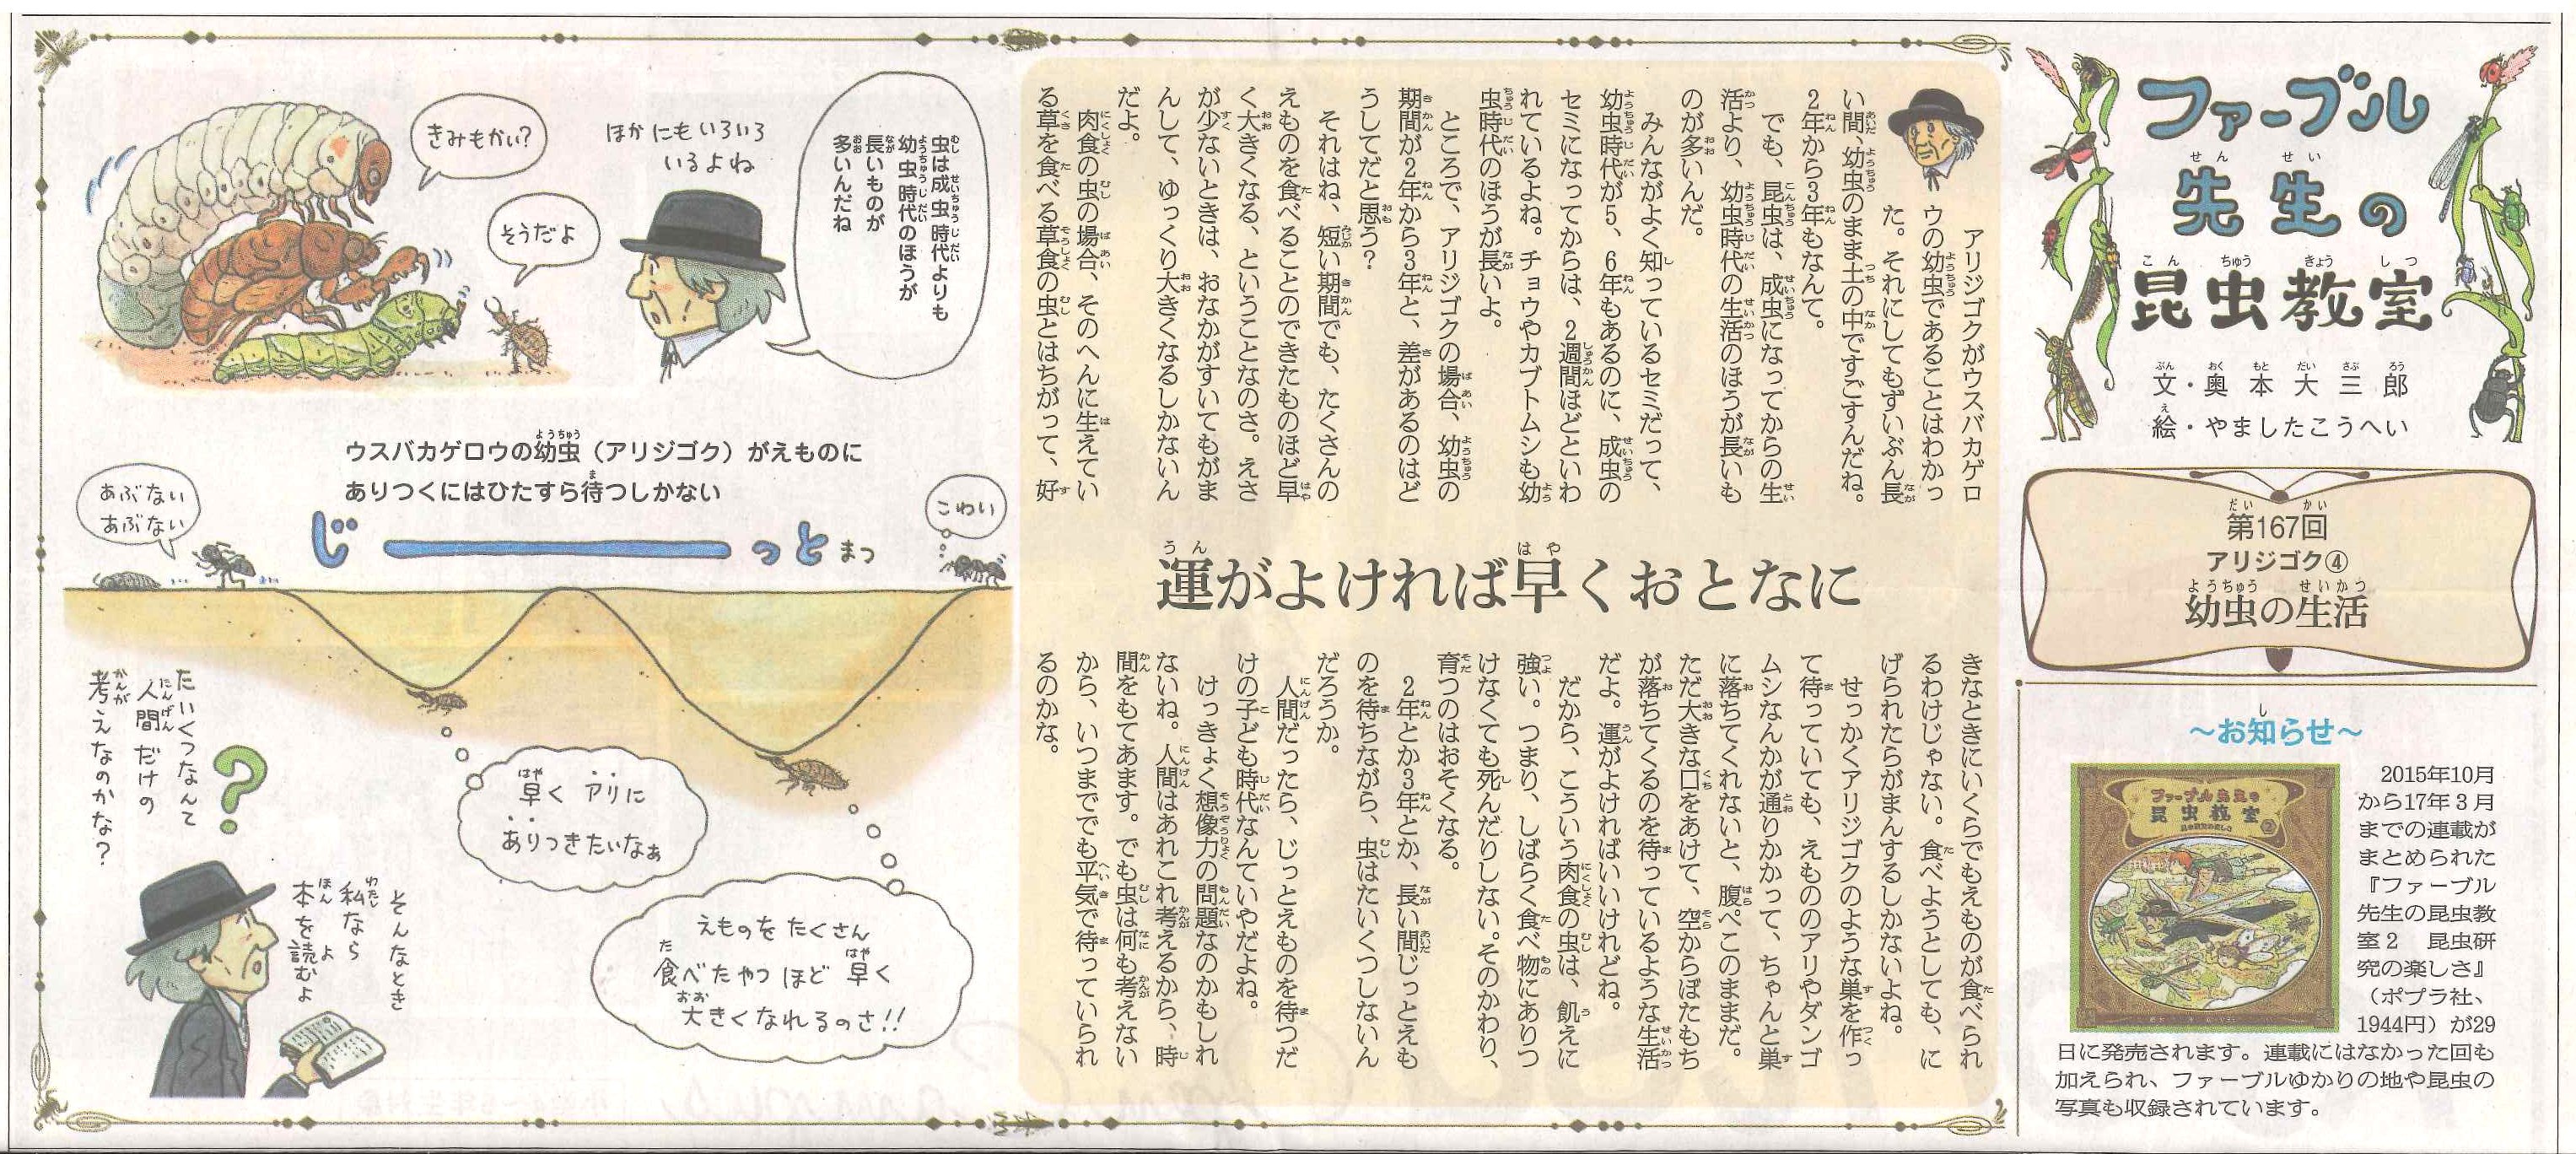 ファーブル
先生の
昆虫教室
文・奥本大三郎
絵・やましたこうへい
第167回
アリジゴク④
幼虫の生活
～お知らせ～
2015年10月
から17年3月
までの連載が
まとめられた
『ファーブル
先生の昆虫教
室2　昆虫研
究の楽しさ』
（ポプラ社、
1944円）が29
日に発売されます。連載にはなかった回も
加えられ、ファーブルゆかりの地や昆虫の
写真も収録されています。
ファーブル先生の
昆虫教室
2
運がよければ早くおとなに
アリジゴクがウスバカゲロ
ウの幼虫であることはわかっ
た。それにしてもずいぶん長
い間、幼虫のまま土の中ですごすんだね。
2年から3年もなんて。
でも、昆虫は、成虫になってからの生
活より、幼虫時代の生活のほうが長いも
のが多いんだ。
みんながよく知っているセミだって、
幼虫時代が5、6年もあるのに、成虫の
セミになってからは、2週間ほどといわ
れているよね。チョウやカブトムシも幼
虫時代のほうが長いよ。
ところで、アリジゴクの場合、幼虫の
期間が2年から3年と、差があるのはど
うしてだと思う？
それはね、短い期間でも、たくさんの
えものを食べることのできたものほど早
く大きくなる、ということなのさ。えさ
が少ないときは、おなかがすいてもがま
んして、ゆっくり大きくなるしかないん
だよ。
肉食の虫の場合、そのへんに生えてい
る草を食べる草食の虫とはちがって、好
きなときにいくらでもえものが食べられ
るわけじゃない。食べようとしても、に
げられたらがまんするしかないよね。
せっかくアリジゴクのような巣を作っ
て待っていても、えもののアリやダンゴ
ムシなんかが通りかかって、ちゃんと巣
に落ちてくれないと、腹ぺこのままだ。
ただ大きな口をあけて、空からぼたもち
が落ちてくるのを待っているような生活
だよ。運がよければいいけれどね。
だから、こういう肉食の虫は、飢えに
強い。つまり、しばらく食べ物にありつ
けなくても死んだりしない。そのかわり、
育つのはおそくなる。
2年とか3年とか、長い間じっとえも
のを待ちながら、虫はたいくつしないん
だろうか。
人間だったら、じっとえものを待つだ
けの子ども時代なんていやだよね。
けっきょく想像力の問題なのかもしれ
ないね。人間はあれこれ考えるから、時
間をもてあます。でも虫は何も考えない
から、いつまででも平気で待っていられ
るのかな。
虫は成虫時代よりも
幼虫時代のほうが
長いものが
多いんだね
ほかにもいろいろ
いるよね
きみもかい？
そうだよ
ウスバカゲロウの幼虫（アリジゴク）がえものに
ありつくにはひたすら待つしかない
じーっとまつ
こわい
あぶない
あぶない
早くアリに
ありつきたいなぁ
えものをたくさん
食べたやつほど早く
大きくなれるのさ!!
たいくつなんて
人間だけの
考えなのかな？
?
そんなとき
私なら
本を読むよ